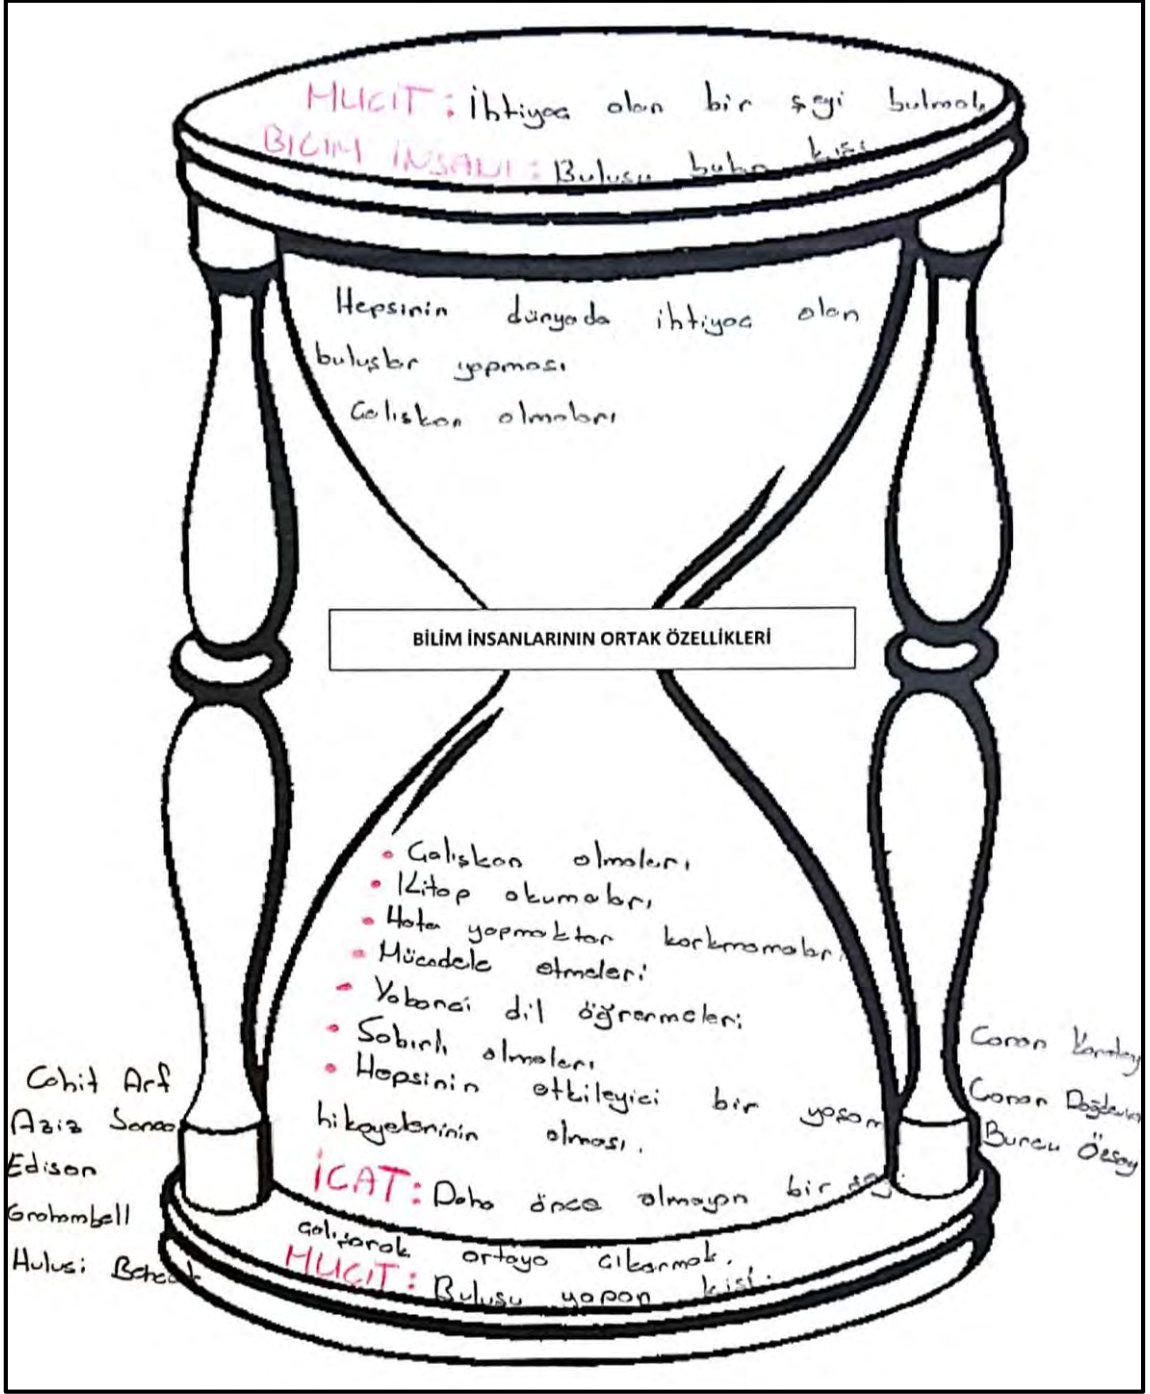 MUCİT : İhtiyaç olan bir şeyi bulmak
BİLİM İNSANI : Buluşu bulan kişi
Hepsinin dünyada ihtiyaç olan
buluşlar yapması
Çalışkan olmaları
BİLİM İNSANLARININ ORTAK ÖZELLİKLERİ
• Çalışkan olmaları
• Kitap okumaları
• Hata yapmaktan korkmamaları
• Mücadele etmeleri
• Yabancı dil öğrenmeleri
• Sabırlı olmaları
• Hepsinin etkileyici bir yaşam
hikayelerinin olması.
İCAT : Daha önce olmayan bir şeyi
çalışarak ortaya çıkarmak.
MUCİT : Buluşu yapan kişi.
Cahit Arf
Aziz Sancar
Edison
Grahambell
Hulusi Behçet
Canan
Canan Dağdeviren
Burcu Özsoy